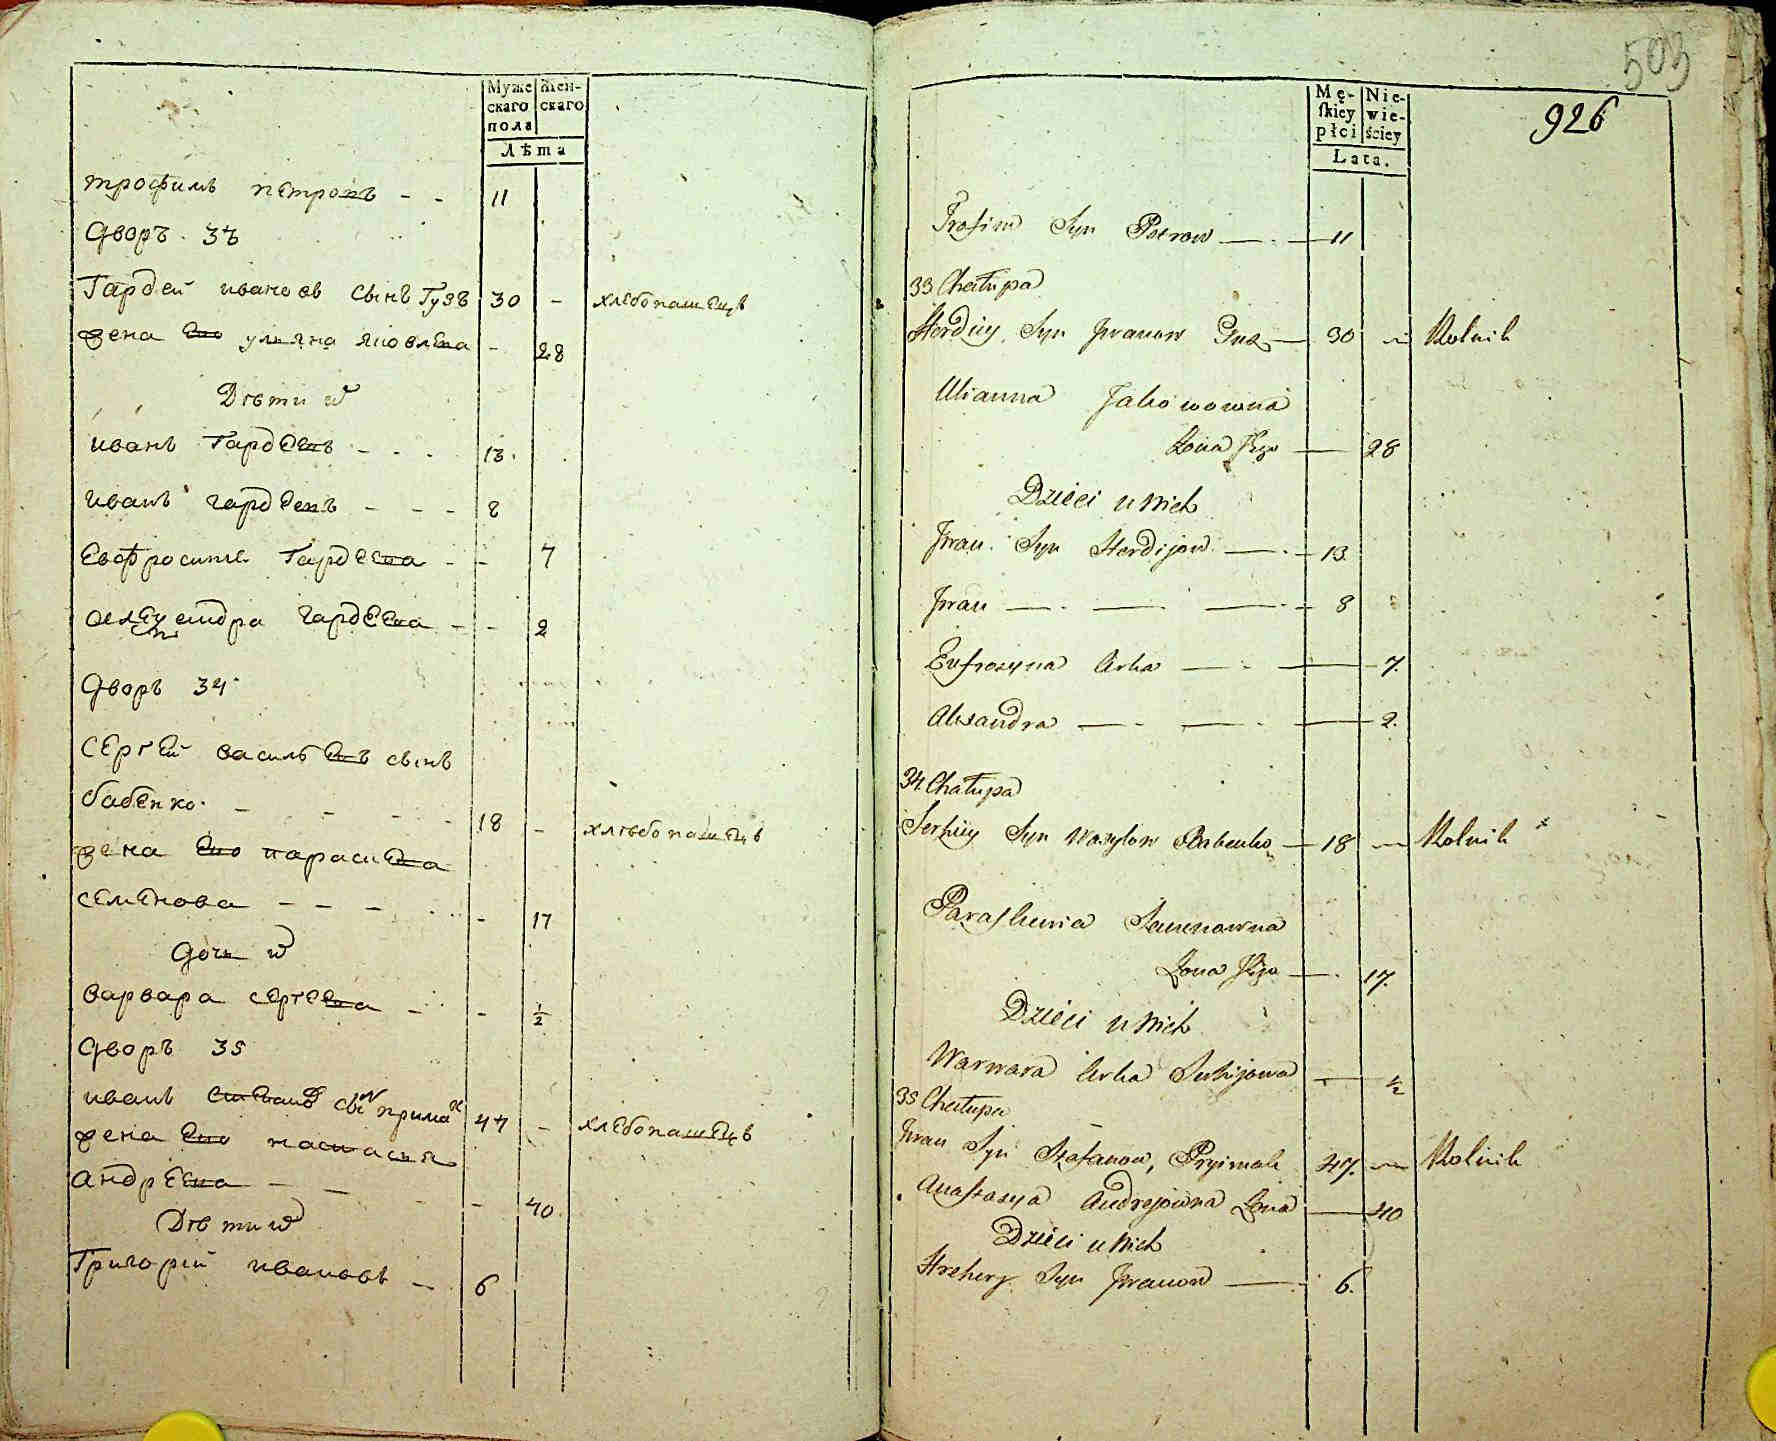 Муже
скаго
пола
Жен-
скаго
Лѣта
трофимъ петровъ - - 11
Дворъ 33
Гардей ивановъ сынъ Гузъ 30 - хлебопашецъ
жена Его ульяна яковлева - 28
Дѣти их
иванъ Гардеевъ - - - 13.
иванъ гардеевъ - - - 8
Евфросиния Гардеева - - 7
александра гардеева - - 2
Дворъ 34
Сергей васильевъ сынъ
бабенко - - - - 18 - хлѣбопашецъ
жена Его парасцева
семенова - - - - 17
Дочь их
варвара сергеева - - ½
Дворъ 35
иванъ степановъ сынъ примак 47 - хлебопашецъ
жена Его настасия
андреева - - - 40
Дѣти их
Григорий ивановъ - 6
503
926
Mę-
ſkiey
płci
Nie-
wie-
ściey
Lata.
Trofim Syn Petrow — 11
33 Chałupa
Herdiey Syn Iwanow Guz — 30 — Rolnik
Ulianna Jakowowna
Żona Jego — 28
Dzieci u Nich
Iwan Syn Herdijow — 13
Iwan — — — 8
Eufrozyna Corka — — 7.
Alexandra — — — 2.
34 Chałupa
Serhiey Syn Wasylow Babenko — 18 — Rolnik
Paraskewia Semenowna
Żona Jego — 17.
Dzieci u Nich
Warwara Corka Serhijowa — ½
35 Chałupa
Iwan Syn Stefanow, Pryimak 47. — Rolnik
Anastasya Andrejowna Żona — 40
Dzieci u Nich
Hrehory Syn Iwanow — 6.